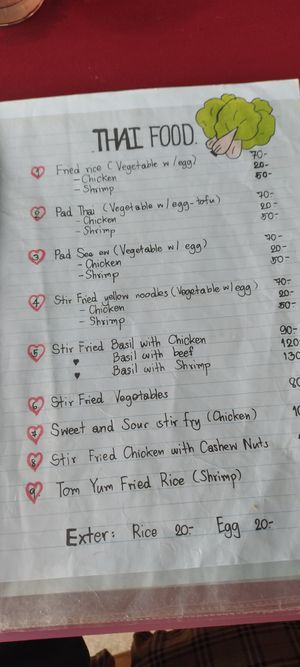 THAI FOOD.
1 Fried rice (Vegetable w/egg) 70-
- Chicken 20-
- Shrimp 50-
2 Pad Thai (Vegetable w/ egg-tofu) 70-
- Chicken 20-
- Shrimp 50-
3 Pad See ew (Vegetable w/ egg) 70-
- Chicken 20-
- Shrimp 50-
4 Stir Fried yellow noodles (Vegetable w/egg) 70-
- Chicken 20-
- Shrimp 50-
5 Stir Fried Basil with Chicken 90-
♥ Basil with beef 120
♥ Basil with Shrimp 130
6 Stir Fried Vegetables 80
7 Sweet and Sour stir fry (Chicken)
8 Stir Fried Chicken with Cashew Nuts
9 Tom Yum Fried Rice (Shrimp)
Exter: Rice 20- Egg 20-